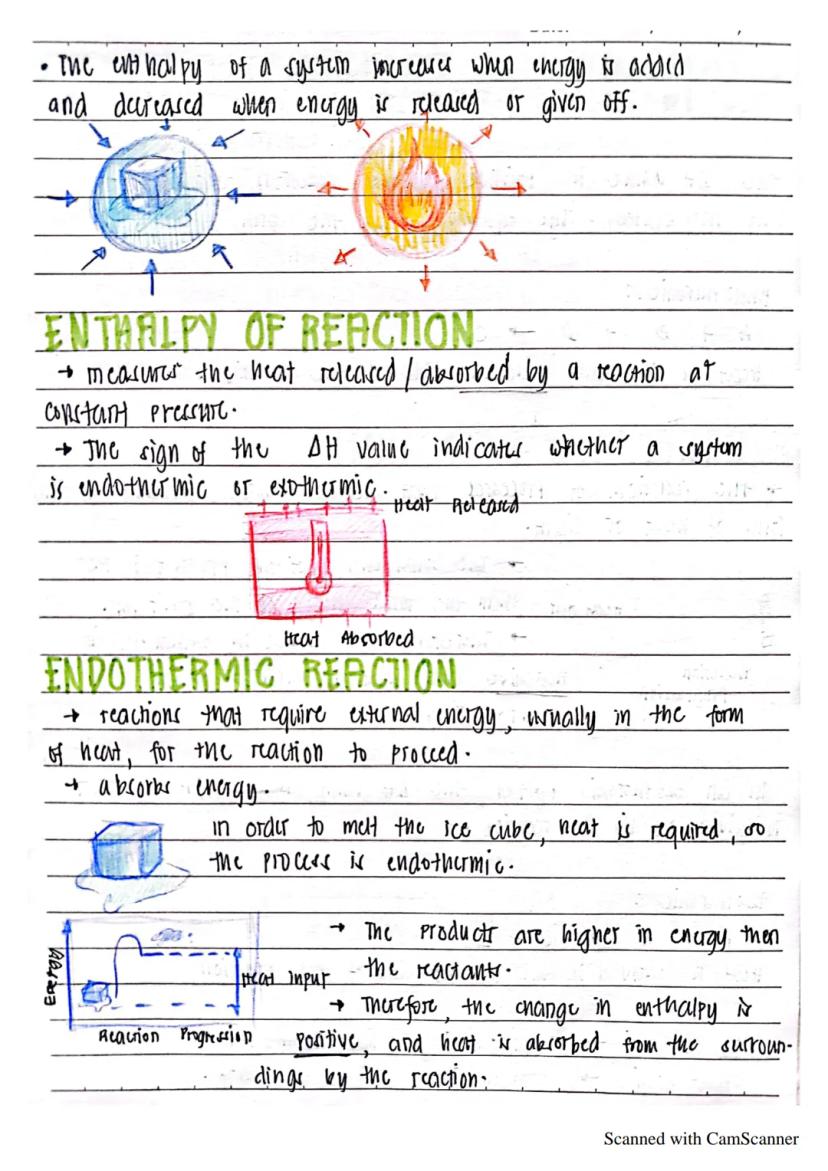 • The enthalpy of a system increases when energy is added
and decreased when energy is released or given off.
ENTHALPY OF REACTION
→ measures the heat released / absorbed by a reaction at
constant pressure.
→ The sign of the ΔH value indicates whether a system
is endothermic or exothermic.
Heat Released
Heat Absorbed
ENDOTHERMIC REACTION
→ reactions that require external energy, usually in the form
of heat, for the reaction to proceed.
→ absorbs energy.
in order to melt the ice cube, heat is required, so
the process is endothermic.
→ The products are higher in energy then
Energy
Heat input
the reactants.
→ Therefore, the change in enthalpy is
Reaction Progression
positive, and heat is absorbed from the surroun-
dings by the reaction.
Scanned with CamScanner